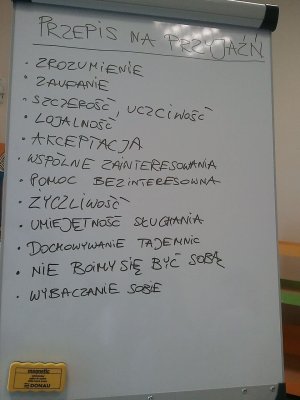 PRZEPIS NA PRZYJAŹŃ
· ZROZUMIENIE
· ZAUFANIE
· SZCZEROŚĆ, UCZCIWOŚĆ
· LOJALNOŚĆ
· AKCEPTACJA
· WSPÓLNE ZAINTERESOWANIA
· POMOC BEZINTERESOWNA
· ŻYCZLIWOŚĆ
· UMIEJĘTNOŚĆ SŁUCHANIA
· DOCHOWYWANIE TAJEMNIC
· NIE BOIMY SIĘ BYĆ SOBĄ
· WYBACZANIE SOBIE
magnetic
DONAU